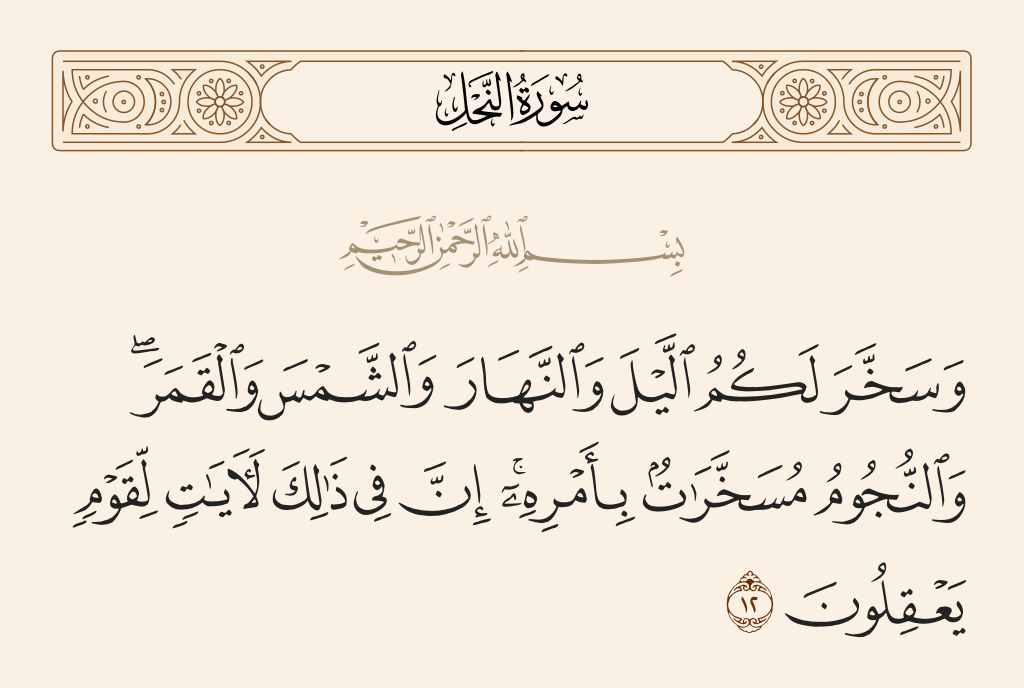 سُورَةُ النَّحْلِ
بِسْمِ ٱللَّهِ ٱلرَّحْمَٰنِ ٱلرَّحِيمِ
وَسَخَّرَ لَكُمُ ٱلَّيْلَ وَٱلنَّهَارَ وَٱلشَّمْسَ وَٱلْقَمَرَ ۖ
وَٱلنُّجُومُ مُسَخَّرَٰتٌۢ بِأَمْرِهِۦٓ ۚ إِنَّ فِى ذَٰلِكَ لَـَٔايَـٰتٍ لِّقَوْمٍ
يَعْقِلُونَ ١٢